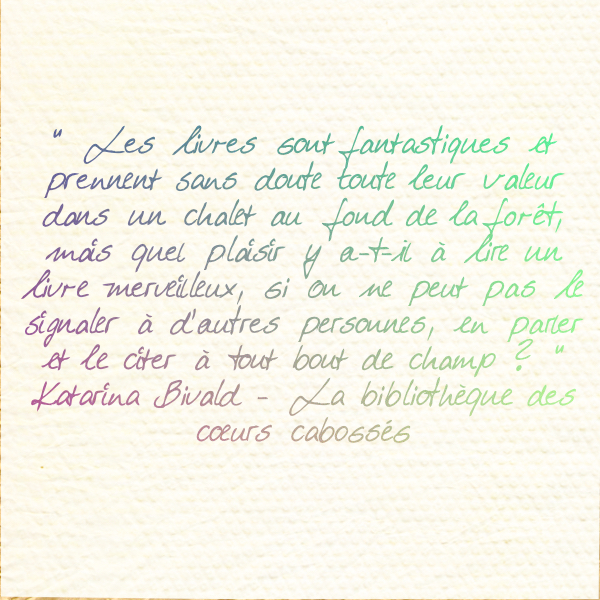 " Les livres sont fantastiques et
prennent sans doute toute leur valeur
dans un chalet au fond de la forêt,
mais quel plaisir y a-t-il à lire un
livre merveilleux, si on ne peut pas le
signaler à d'autres personnes, en parler
et le citer à tout bout de champ ? "
Katarina Bivald - La bibliothèque des
cœurs cabossés